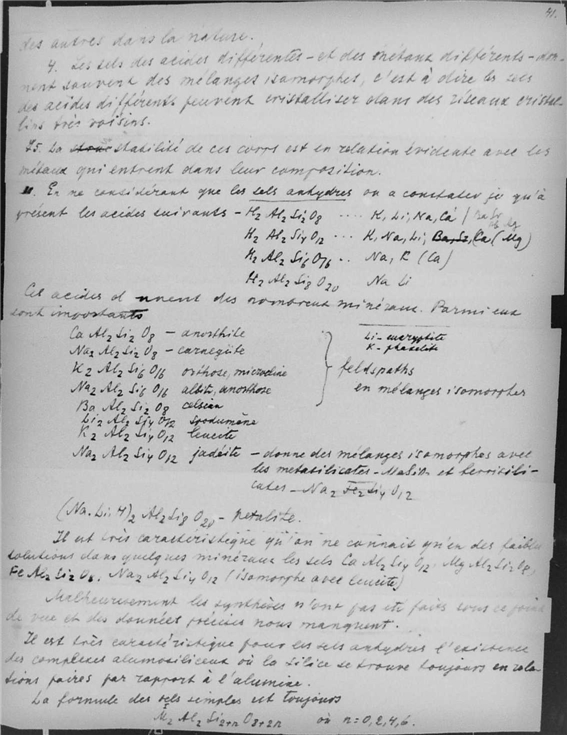 41.
des autres dans la nature.
4. Les sels des acides différentes – et des métaux différents – don-
nent souvent des mélanges isomorphes, c'est à dire les sels
des acides différents peuvent cristalliser dans des réseaux cristal-
lins très voisins.
5. La stabilité de ces corps est en relation évidente avec les
métaux qui entrent dans leur composition.
En ne considérant que les sels anhydres on a constater jusqu'à
présent les acides suivants – H2 Al2 Si2 O8 .... K, Li, Na, Ca
H2 Al2 Si4 O12 ... K, Na, Li, Ba, Sr, Ca (Mg)
H2 Al2 Si6 O16 .. Na, K (Ca)
H2 Al2 Si8 O20 Na Li
Ces acides donnent des nombreux minéraux. Parmi eux
sont importants
Ca Al2 Si2 O8 – anorthite
Li – eucryptite
Na2 Al2 Si2 O8 – carnegiite
K – phacelite
K2 Al2 Si6 O16 orthose, microcline
feldspaths
Na2 Al2 Si6 O16 albite, anorthose
en mélanges isomorphes
Ba Al2 Si2 O8 celsian
Li2 Al2 Si4 O12 spodumène
K2 Al2 Si4 O12 leucite
Na2 Al2 Si4 O12 jadéite – donne des mélanges isomorphes avec
les metasilicates – MgSiO3 et ferrisili-
cates – Na2 Fe2 Si4 O12
(Na.Li.H)2 Al2 Si8 O20 – petalite.
Il est très caractéristique qu'on ne connait qu'en des faibles
solutions dans quelques minéraux les sels Ca Al2 Si4 O12, Mg Al2 Si2 O8,
Fe Al2 Si2 O8, Na2 Al2 Si4 O12 (isomorphe avec leucite)
Malheureusement les synthèses n'ont pas été faits sous ce point
de vue et des données précises nous manquent.
Il est très caractéristique pour les sels anhydres l'existence
des complexes alumosiliceux où la silice se trouve toujours en rela-
tions paires par rapport à l'alumine.
La formule des sels simples est toujours
M2 Al2 Si2+n O8+2n où n=0,2,4,6.